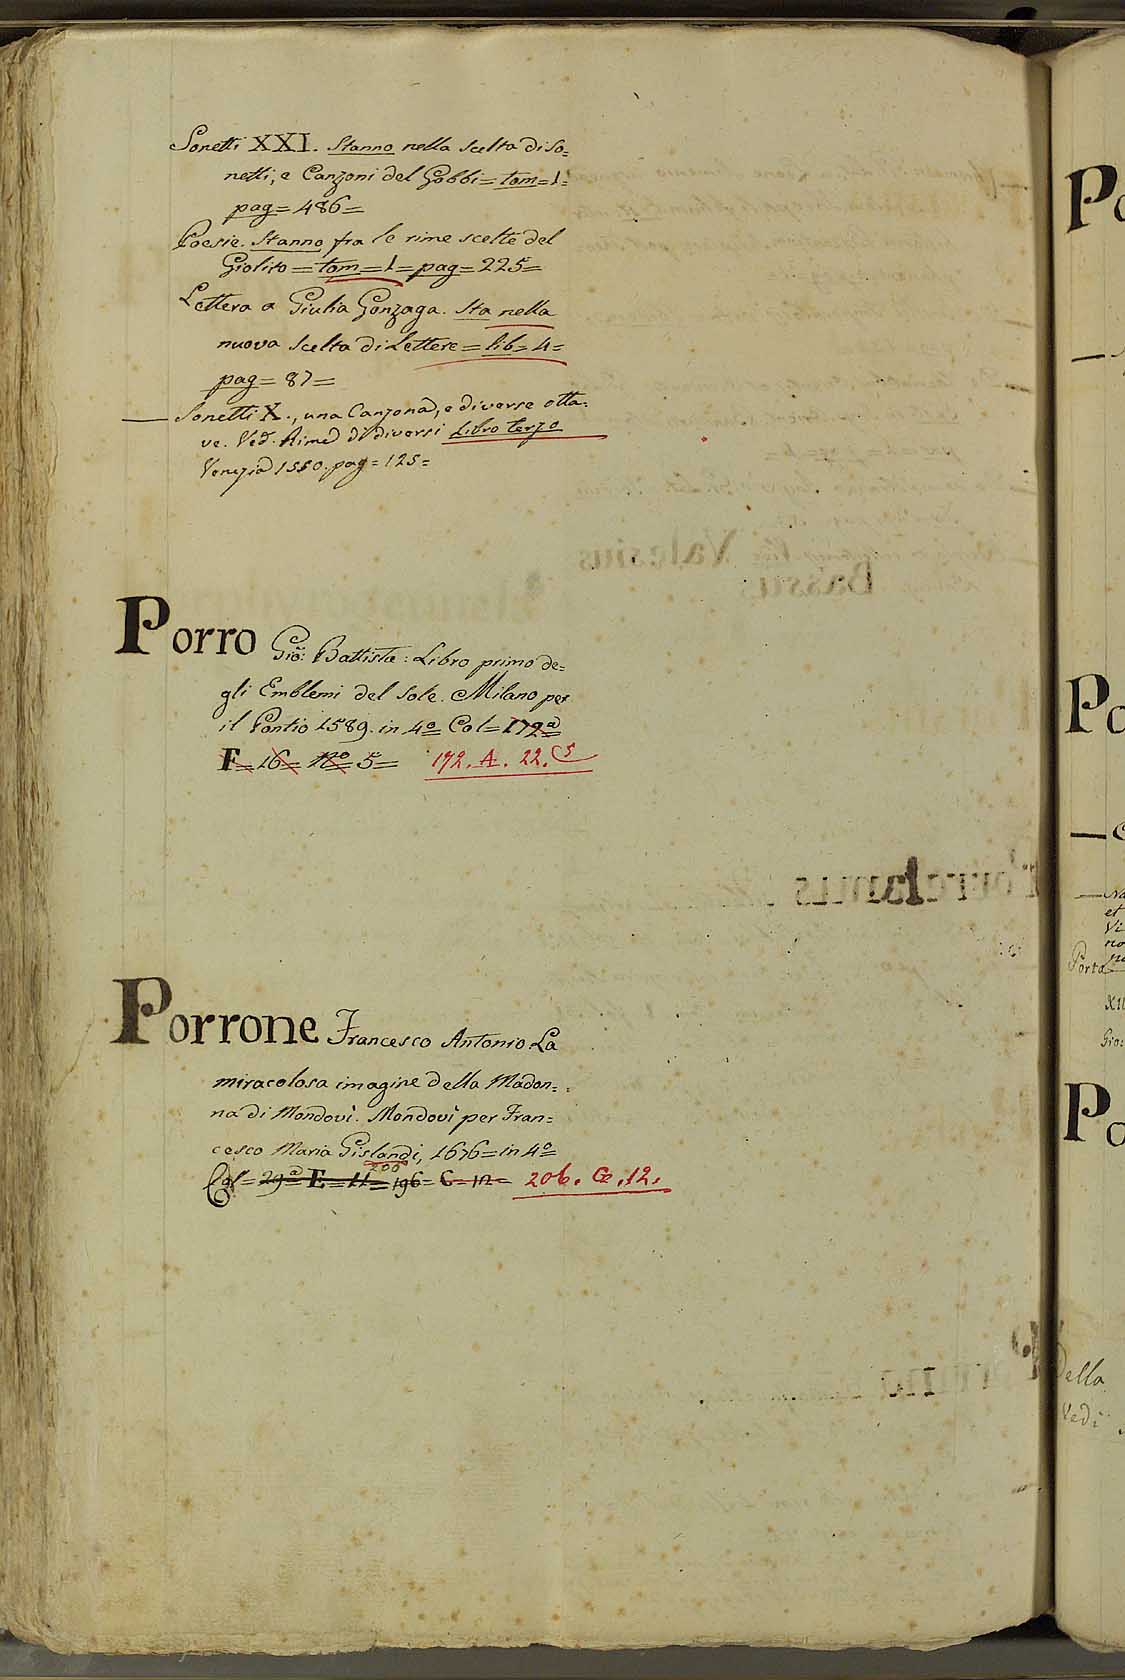 Sonetti XXI. Stanno nella scelta di So=
netti, e Canzoni del Gobbi= tom=1=
pag= 486=
Poesie. Stanno fra le rime scelte del
Giolito= tom=1= pag= 225=
Lettera a Giulia Gonzaga. Sta nella
nuova scelta di Lettere= lib= 4=
pag= 87=
— Sonetti X., una Canzona, e diverse otta=
ve. Ved. Rime di diversi Libro terzo
Venezia 1550. pag= 125=
Porro Gio: Battista: Libro primo de=
gli Emblemi del Sole. Milano per
il Pontio 1589. in 4º Col= 172ª
F= 16= Nº 5= 192. A. 22. 5
Porrone Francesco Antonio La
miracolosa imagine della Madon=
na di Mondovì. Mondovì per Fran=
cesco Maria Gislandi, 1676= in 4º
200
Col= 29ª E= 11= 196= C= 12= 206. G. 12.
Po
Po
Porta
XII
Gio:
Po
Della
Vedi